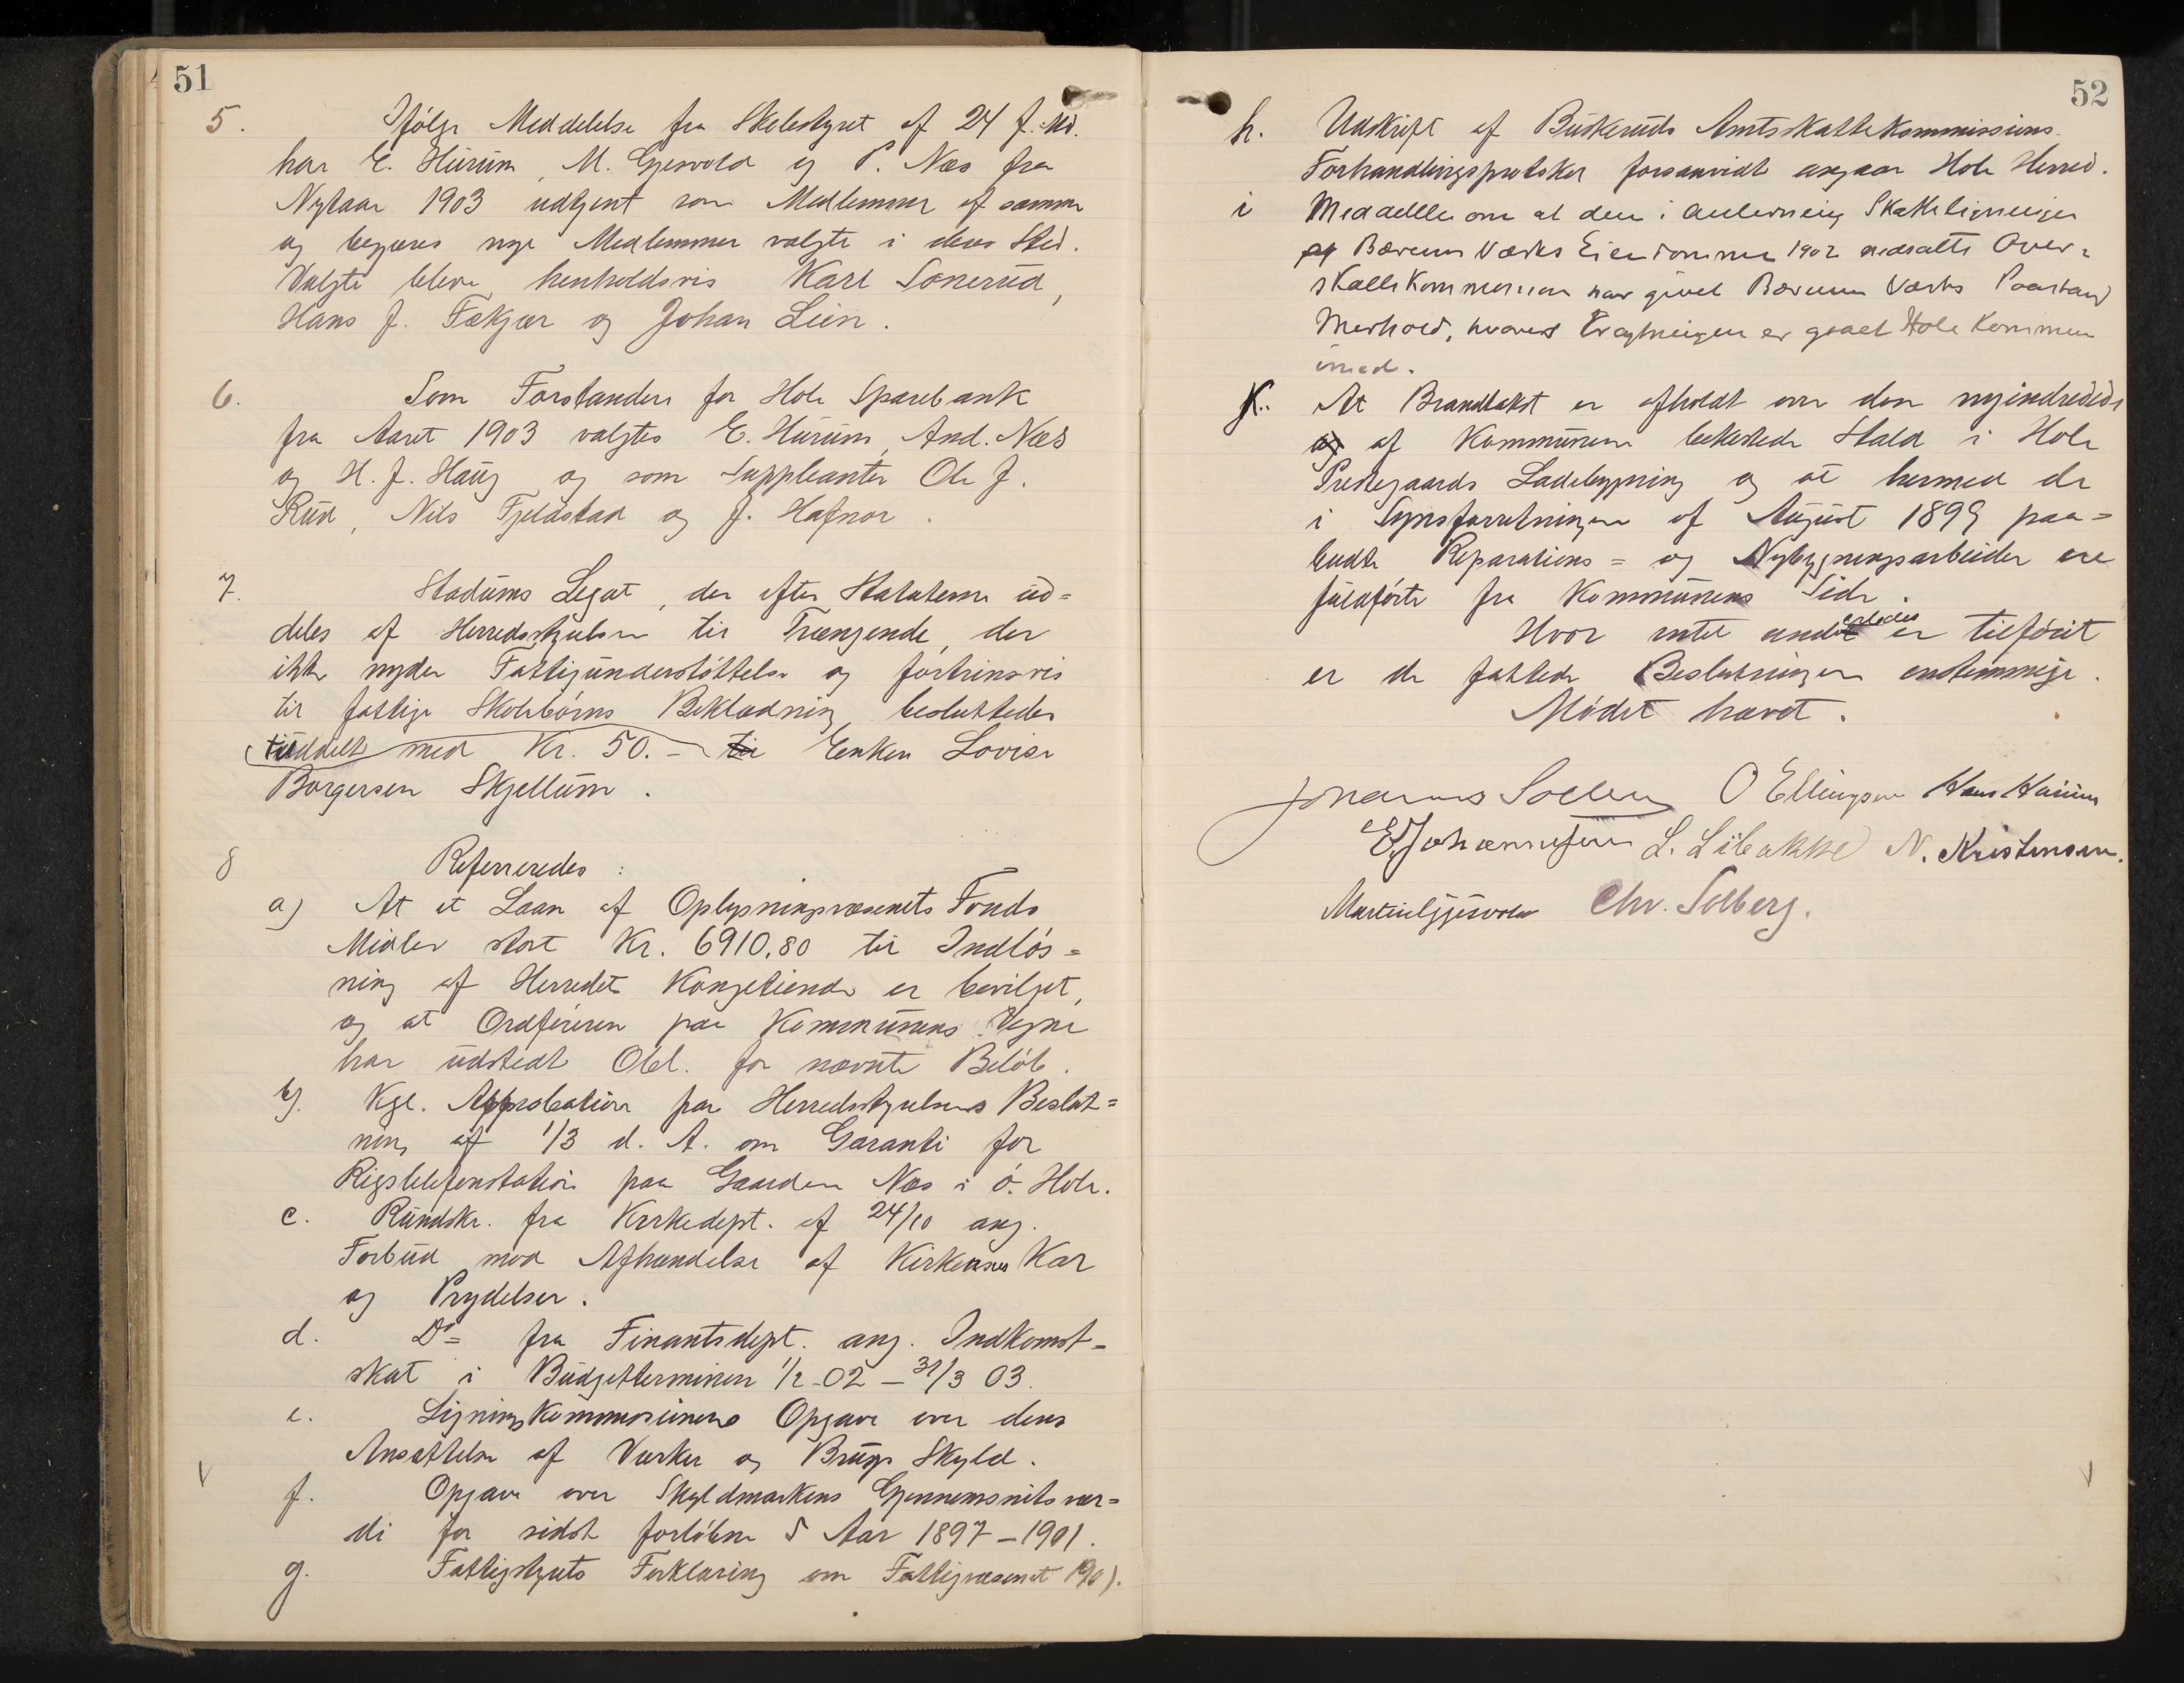 51
5. Ifølge Meddelelse fra Skolestyret af 24 f. Md.
har E. Hurum, M. Gjesvold og P. Næs fra
Nytaar 1903 udtjent som Medlemmer af samme
og begjæres nye Medlemmer valgte i deres Sted.
Valgte bleve henholdsvis Karl Sonerud,
Hans J. Fækjær og Johan Lien.
6. Som Forstandere for Hole Sparebank
fra Aaret 1903 valgtes E. Hurum, And. Næs
og H. J. Haug og som Suppleanter Ole J.
Rud, Nils Fjeldstad og J. Hafnor.
7. Stadums Legat, der efter Statuterne ud=
deles af Herredsstyrelsen til Trængende, der
ikke nyder Fattigunderstøttelse og fortrinsvis
til fattige Skolebørns Beklædning, besluttedes
uddelt med Kr. 50.- til Enken Lovise
Borgersen Skjellum.
8 Refereredes:
a) At et Laan af Oplysningsvæsenets Fonds
Midler stort Kr. 6910.80 til Indløs=
ning af Herredets Kongetiende er bevilget,
og at Ordføreren paa Kommunens Vegne
har udstedt Obl. for nævnte Beløb.
b). Kgl. Approbation paa Herredsstyrelsens Beslut=
ning af 1/3 d. A. om Garanti for
Rigstelefonstation paa Gaarden Næs i ø. Hole.
c. Rundskr. fra Kirkedept. af 24/10 ang.
Forbud mod Afhændelse af Kirkernes Kar
og Prydelser.
d. Do= fra Finantsdept. ang. Indkomst-
skat i Budgetterminen 1/2-02 - 31/3 03.
e. Ligningskommissionens Opgave over dens
Ansættelse af Værker og Brugs Skyld.
f. Opgave over Skyldmarkens Gjennemsnitsvær=
di for sidst forløbne 5 Aar 1897-1901.
g. Fattigstyrets Forklaring om Fattigvæsenet 1901.
52
h. Udskrift af Buskeruds Amtsskattekommissions
Forhandlingsprotokol forsaavidt angaar Hole Herred.
i Meddelelse om at den i Skatteligningen
Bærums Værks Eiendomme 1902 nedsatte Over=
skattekommission har givet Bærums Værks Paastand
Medhold, hvorved er gaaet Hole Kommune
imod.
K. At Brandtakst er afholdt over den nyindredede
af Kommunen bekostede Stald i Hole
Prestegaards Ladebygning og at hermed de
i Synsforretningen af August 1899 paa=
budte Reparations= og Nybygningsarbeider ere
fuldførte fra Kommunens Side.
Hvor intet anderledes er tilført
er de fattede Beslutninger enstemmige.
Mødet hævet.
Johannes Sollen O Ellingsen Hans Hurum
E. Johannesen L. Libakke N. Kristensen.
Martin Gjesvold Chr. Solberg.